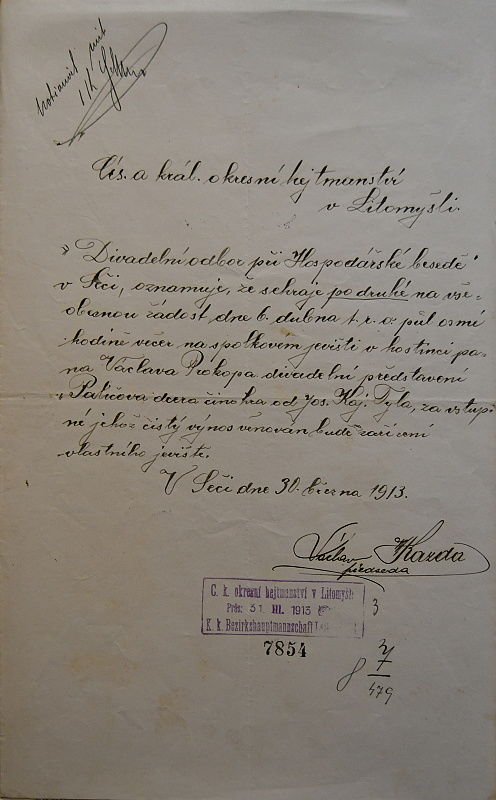 Cís. a král. okresní hejtmanství
v Litomyšli.
„Divadelní odbor při Hospodářské besedě"
v Seči, oznamuje, že sehraje po druhé na vše-
obecnou žádost dne 6. dubna t. r. o půl osmé
hodině večer na spolkovém jevišti v hostinci pa-
na Václava Prokopa divadelní představení
„Paličova dcera činohra od Jos. Kaj. Tyla, za vstup-
né jehož čistý výnos věnován bude zařízení
vlastního jeviště.
V Seči dne 30. března 1913.
Václav Kazda
předseda
C. k. okresní hejtmanství v Litomyšli
Präs: 31. III. 1913
K. k. Bezirkshauptmannschaft
3
7854
8 7/479